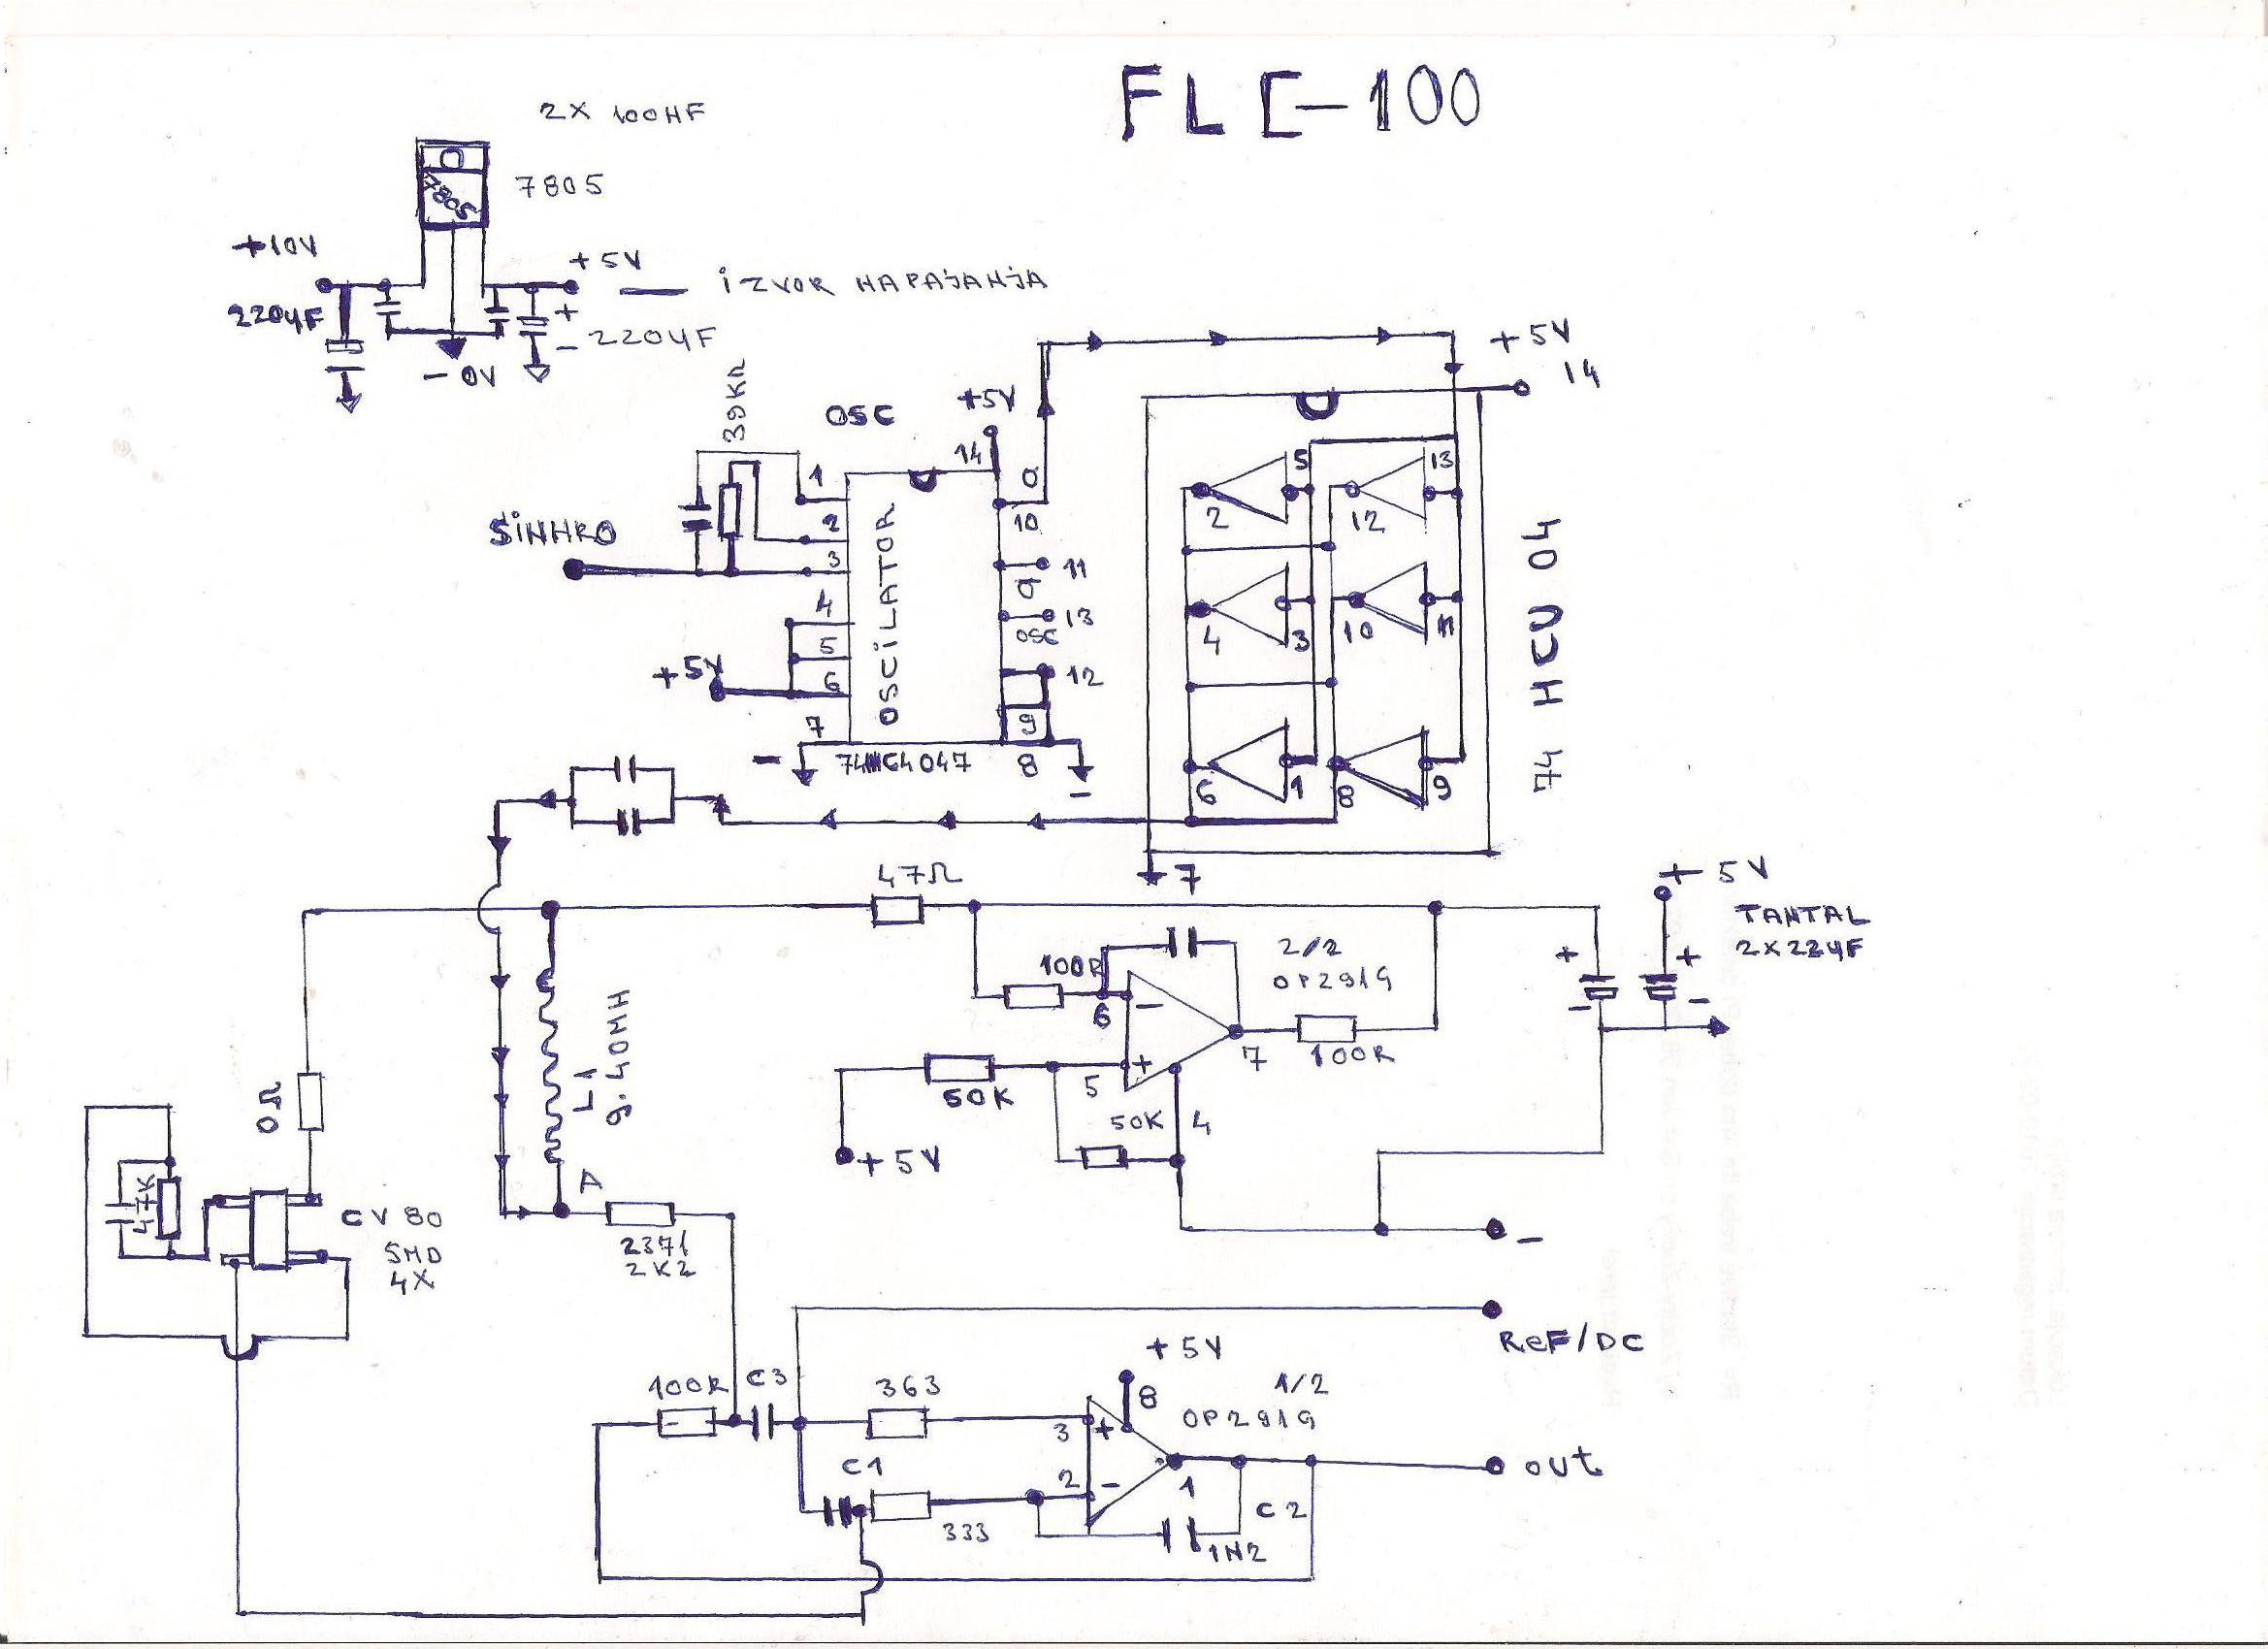 FLC-100
2X 100HF
7805
7805
+10V
+5V
iZVOR HAPAJAHJA
220µF
+
- 220µF
- 0V
39KΩ
OSC
+5V
14
SiHHRO
1
2
3
4
5
6
7
+5V
OSCiLATOR
Q
10
11
Q
13
OSC
12
9
8
-
74HC4047
-
+5V
14
5
13
2
12
4
3
10
11
6
1
8
9
7
74 HCU 04
47Ω
+ 5V
TAHTAL
2X22µF
+
+
-
-
100R
2/2
OP291G
6
-
+
5
7
100R
50K
50K
4
+5V
-
L1
g.40MH
A
0Ω
47K
CV80
SMD
4X
2371
2K2
REF/DC
+5V
8
1/2
OP291G
100R
C3
363
3
+
C1
2
-
1
OUt
333
C2
1H2